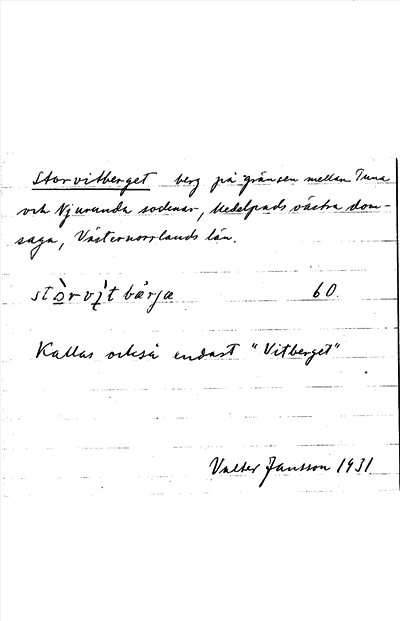 Storvitberget berg på gränsen mellan Tuna
och Njurunda socknar, Medelpads västra dom-
saga, Västernorrlands län.
stò̱rvì̱tbærjæ 60.
Kallas också endast "Vitberget"
Valter Jansson 1931